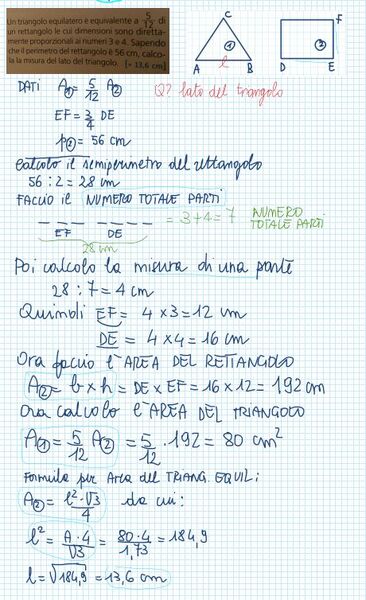 Un triangolo equilatero è equivalente a 5/12 di
un rettangolo le cui dimensioni sono diretta-
mente proporzionali ai numeri 3 e 4. Sapendo
che il perimetro del rettangolo è 56 cm, calco-
la la misura del lato del triangolo. [≈ 13,6 cm]
C
1
A l B
F
2
D E
DATI A① = 5/12 A②
Q? lato del triangolo
EF = 3/4 DE
p② = 56 cm
Calcolo il semiperimetro del rettangolo
56 : 2 = 28 cm
FACCIO IL NUMERO TOTALE PARTI
_ _ _ _ _ _ _ = 3+4=7 NUMERO TOTALE PARTI
EF DE
28 cm
Poi calcolo la misura di una parte
28 : 7 = 4 cm
Quindi EF = 4 x 3 = 12 cm
DE = 4 x 4 = 16 cm
Ora faccio l'AREA DEL RETTANGOLO
A② = b x h = DE x EF = 16 x 12 = 192 cm
Ora calcolo l'AREA DEL TRIANGOLO
A① = 5/12 A② = 5/12 · 192 = 80 cm²
Formula per Area del TRIANG. EQUIL:
A② = l²·√3/4 da cui:
l² = A·4/√3 = 80·4/1,73 = 184,9
l = √184,9 = 13,6 cm